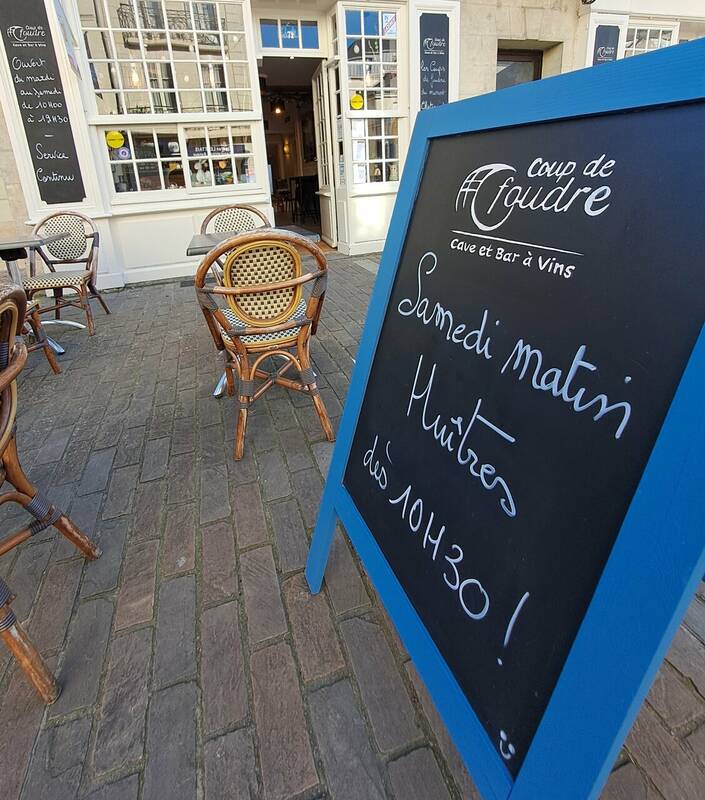 Coup de
foudre
Cave et Bar à Vins
Ouvert
du mardi
au samedi
de 10H00
à 19H30
Service
Continu
Coup de
foudre
Les Coups
de foudre
du moment
Coup de
foudre
Cave et Bar à Vins
Samedi matin
Huîtres
dès 10H30 !